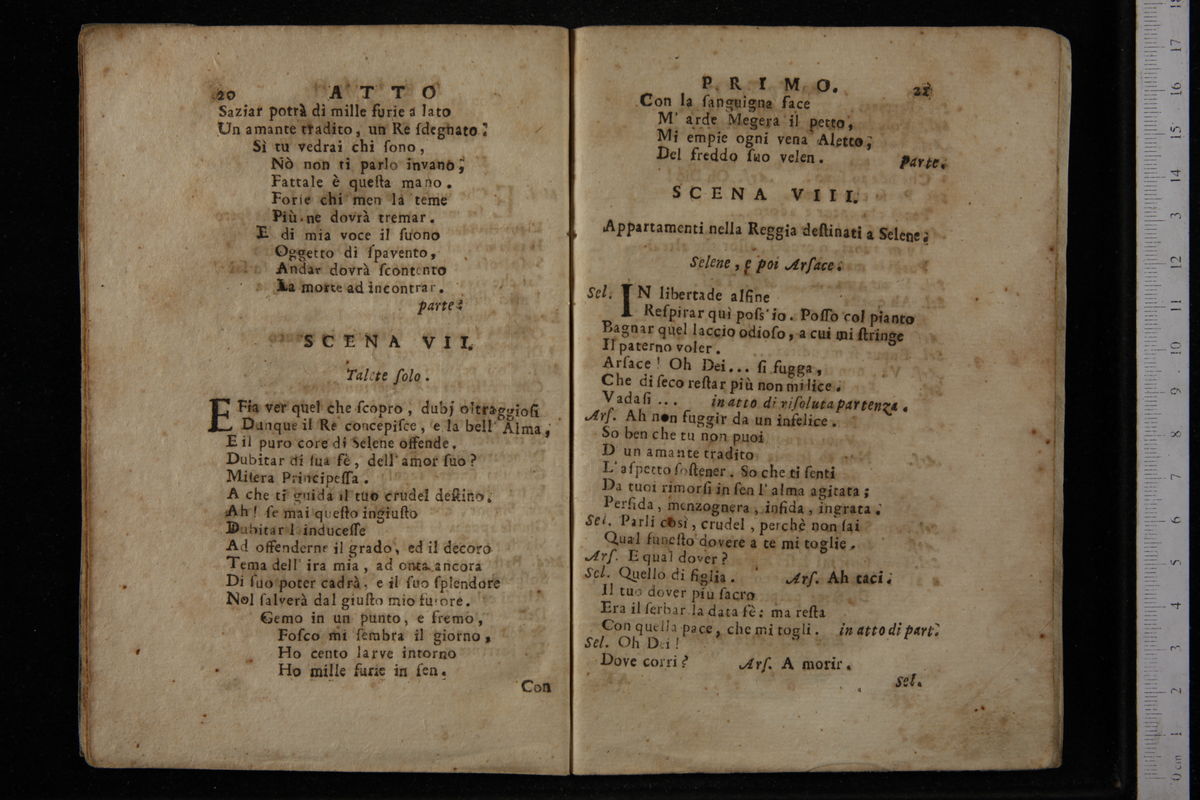 20 ATTO
Saziar potrà di mille furie a lato
Un amante tradito, un Re ſdegnato.
Sì tu vedrai chi ſono,
Nò non ti parlo invano;
Fattale è queſta mano.
Forſe chi men la teme
Più ne dovrà tremar.
E di mia voce il ſuono
Oggetto di ſpavento,
Andar dovrà ſcontento
La morte ad incontrar.
parte.
SCENA VII.
Talete ſolo.
E Fia ver quel che ſcopro, dubj oltraggioſi
Dunque il Re concepiſce, e la bell' Alma,
E il puro core di Selene offende.
Dubitar di ſua fè, dell' amor ſuo?
Miſera Principeſſa.
A che ti guida il tuo crudel deſtino.
Ah! ſe mai queſto ingiuſto
Dubitar l induceſſe
Ad offenderne il grado, ed il decoro
Tema dell' ira mia, ad onta ancora
Di ſuo poter cadrà, e il ſuo ſplendore
Nol ſalverà dal giuſto mio furore.
Gemo in un punto, e fremo,
Foſco mi ſembra il giorno,
Ho cento larve intorno
Ho mille furie in ſen.
Con
PRIMO. 21
Con la ſanguigna face
M' arde Megera il petto,
Mi empie ogni vena Aletto,
Del freddo ſuo velen. parte.
SCENA VIII.
Appartamenti nella Reggia deſtinati a Selene.
Selene, e poi Arſace.
Sel. IN libertade alfine
Reſpirar quì poſs' io. Poſſo col pianto
Bagnar quel laccio odioſo, a cui mi ſtringe
Il paterno voler.
Arſace! Oh Dei... ſi fugga,
Che di ſeco reſtar più non mi lice.
Vadaſi ... in atto di riſoluta partenza.
Arſ. Ah non fuggir da un infelice.
So ben che tu non puoi
D un amante tradito
L' aſpetto ſoſtener. So che ti ſenti
Da tuoi rimorſi in ſen l' alma agitata;
Perfida, menzognera, infida, ingrata.
Sel. Parli così, crudel, perchè non ſai
Qual funeſto dovere a te mi toglie.
Arſ. E qual dover?
Sel. Quello di figlia. Arſ. Ah taci.
Il tuo dover più ſacro
Era il ſerbar la data fè: ma reſta
Con quella pace, che mi togli. in atto di part.
Sel. Oh Dei!
Dove corri? Arſ. A morir.
Sel.